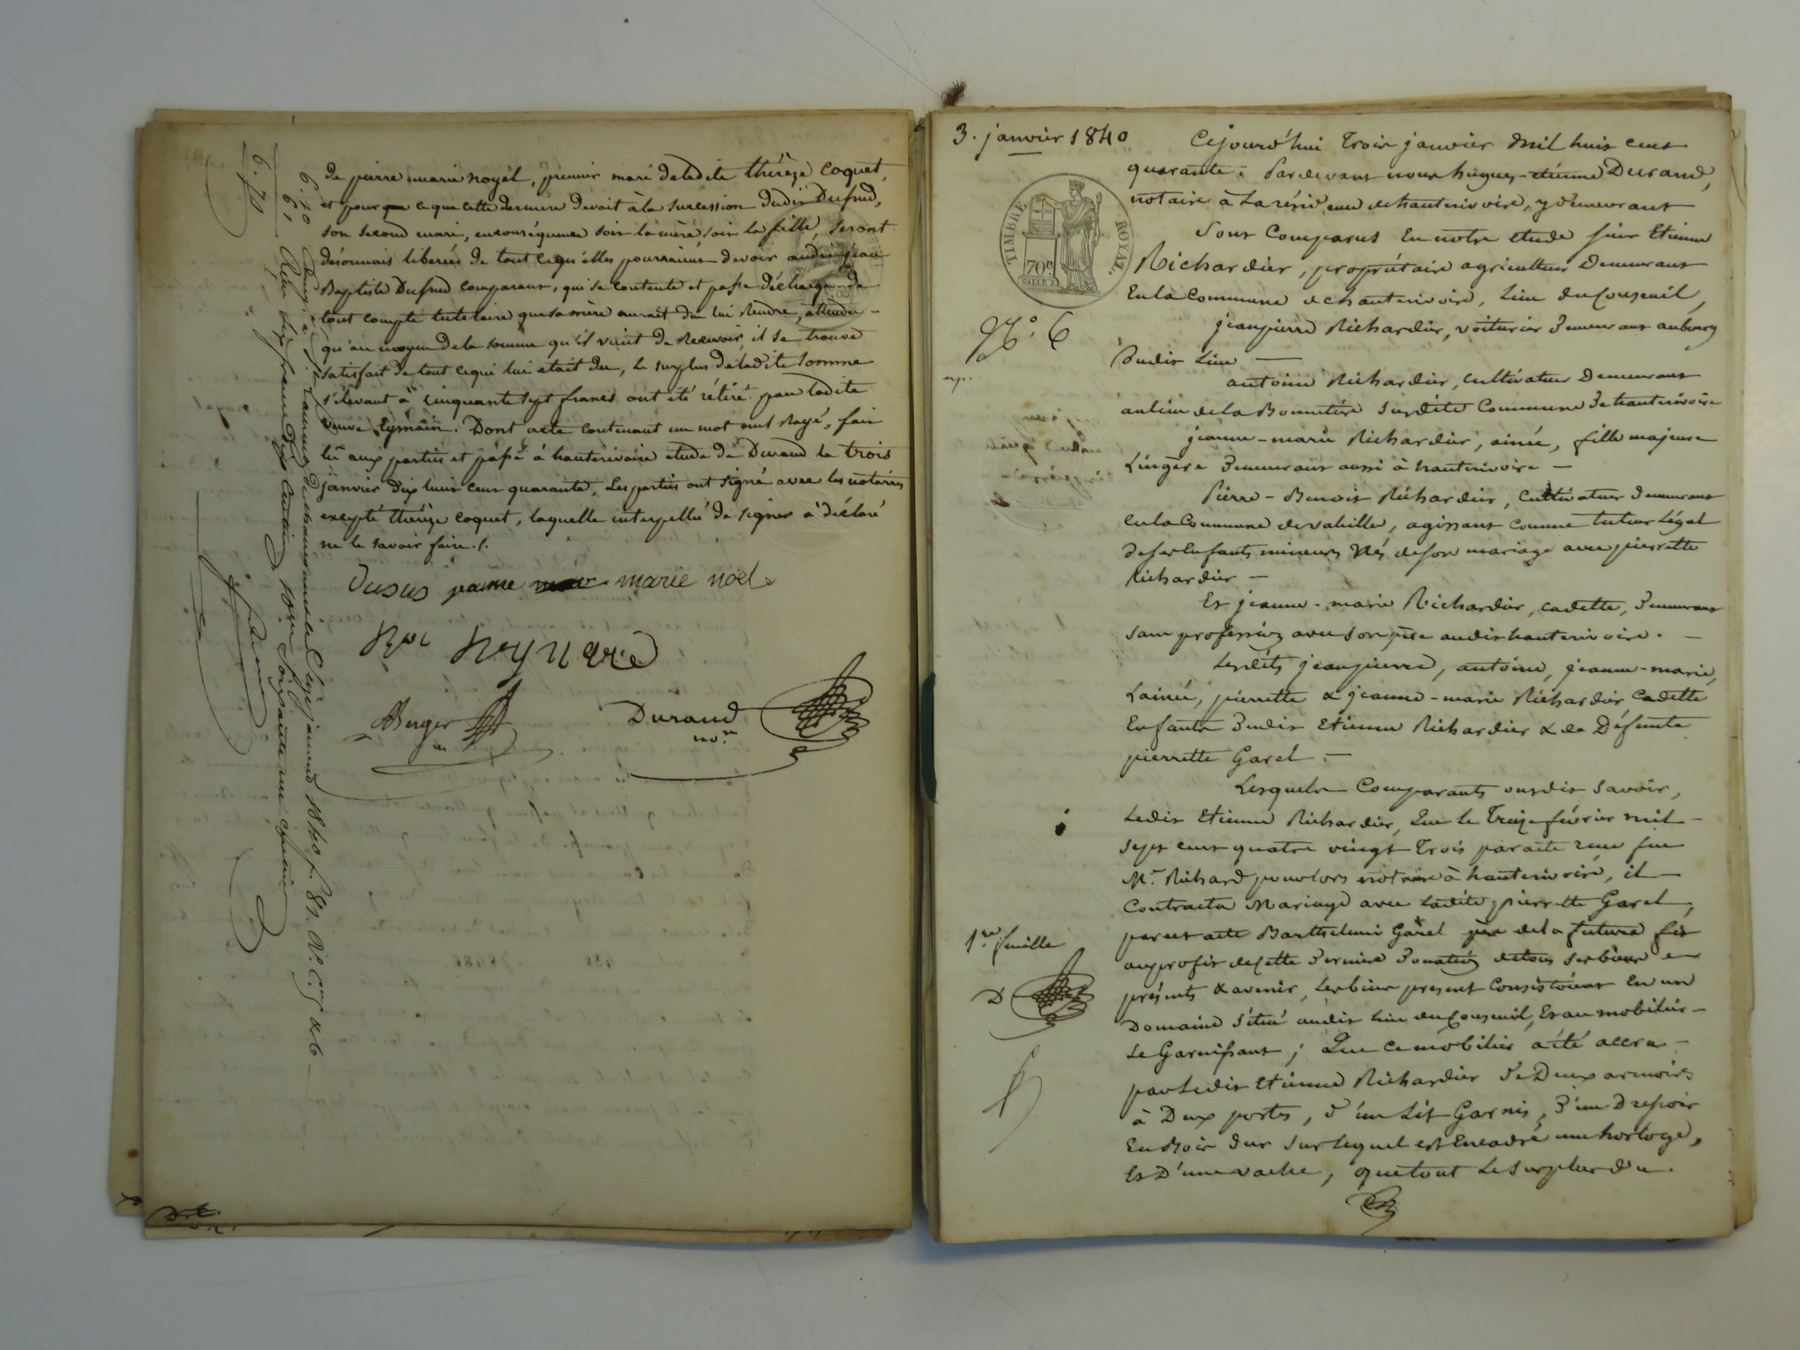 de pierre marie noyél, premier mari de ladite thérèze Coquet,
et pour ce que cette dernière devoit à la succession dudit Dufud,
son second mari, en conséquence soit la mère, soit la fille, seront
désormais liberées de tout ce qu'elles pourraient devoir audit jean
Baptiste Dufud comparant, qui se contente et passe décharge de
tout compte tutelaire que sa mère aurait du lui Rendre, attendu
qu'au moyen de la somme qu'il vient de Recevoir, il se trouve
satisfait de tout ce qui lui était du, le surplus de ladite somme
s'élevant à cinquante sept francs ont été rétiré par ladite
veuve Eymain. Dont acte contenant un mot nul Rayé, fait
lu aux parties et passé à hauterivoire etude de Durand le trois
janvier dix huit cent quarante, Les parties ont signé avec les notaires
excepté thérèze Coquet, laquelle interpellée de signer a déclaré
ne le savoir faire ./.
marie noél
Berger
Durand
no.re
6.70
3. janvier 1840
TIMBRE ROYAL
70c
N.° 6
1.re feuille
D
Cejourd'hui Trois janvier Mil huit cent
quarante ; Pardevant nous hugues-etienne Durand,
notaire à La résidence de hauterivoire, y demeurant
Sont Comparus En notre etude sieur Etienne
Richardier, propriétaire agriculteur Demeurant
En la Commune de hauterivoire, Lieu du Couzeuil,
jean pierre Richardier, voiturier Demeurant au bourg
Dudit Lieu —
antoine Richardier, Cultivateur Demeurant
au lieu de la Bonnetière susdite Commune De hauterivoire
jeanne-marie Richardier, ainée, fille majeure
Lingère Demeurant aussi à hauterivoire —
Pierre-Benoit Richardier, Cultivateur Demeurant
En la Commune de valeille, agissant Comme tuteur Légal
de ses Enfants mineurs Nés de son mariage avec pierrette
Richardier —
Et jeanne-marie Richardier, cadette, Demeurant
sans profession avec son père audit hauterivoire. —
Lesdits jean pierre, antoine, jeanne-marie,
L'ainée, pierrette & jeanne-marie Richardier Cadette
Enfants Dudit Etienne Richardier & de Défunte
pierrette Garel —
Lesquels Comparants ont dit savoir,
Ledit Etienne Richardier, Que le Treize février mil
sept cent quatre vingt Trois par acte reçu par
M.e Richard pour lors notaire à hauterivoire, il
Contracta Mariage avec Ladite pierrette Garel,
par cet acte Barthelemi Garel père de la future fit
au profit de cette Dernière Donation de tous ses biens
présents & avenir, Les biens present Consistoient En un
Domaine situé audit lieu du Couzeuil, Et au mobilier
Le Garnissant ; Que Ce mobilier a été accru
par Ledit Etienne Richardier De Deux armoires
à Deux portes, D'un Lit Garnis, D'un Dressoir
En Bois dur sur Lequel est Encadré une horloge,
Et D'une vache, que tout Le surplus du